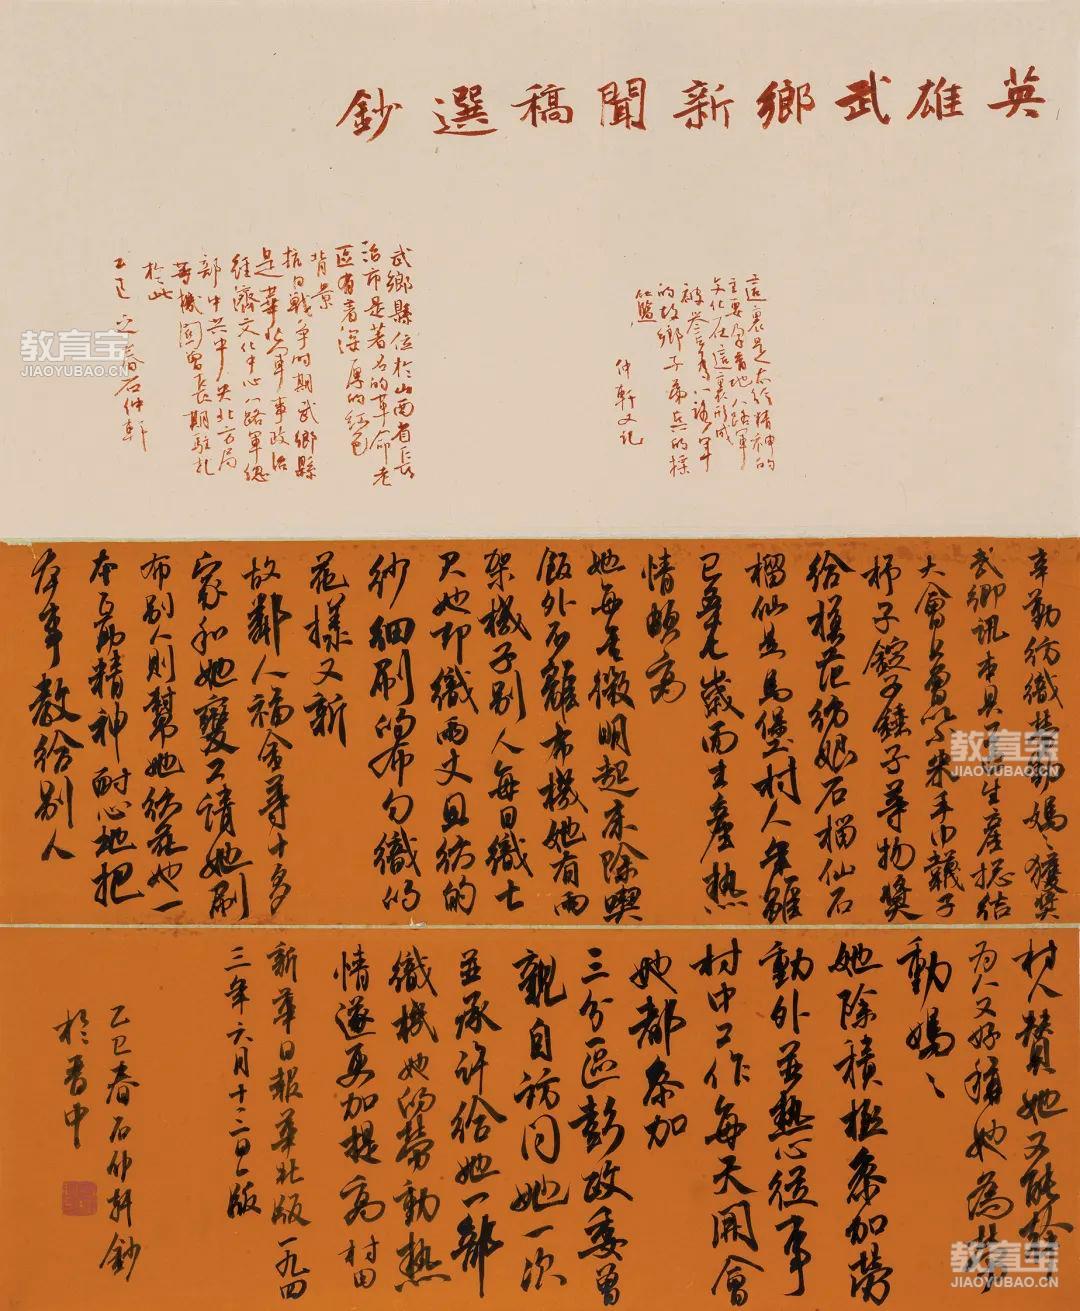 英雄武鄉新聞稿選鈔
這裏是太行精神的
主要孕育地八路軍
文化在這裏形成
被譽為八路軍
的故鄉子弟兵的搖
仲軒又記
武鄉縣位於山西省長
治市是著名的革命老
區有着深厚的紅色
背景
抗日戰爭時期武鄉縣
是華北軍事政治
經濟文化中心八路軍總
部中共中央北方局
等機關曾長期駐扎
於此
乙巳之春石仲軒
辛勤紡織勞動媽媽獲獎
武鄉訊本縣生產總結
大會上曾以米手巾襪子
杼子錠子錘子等物獎
給模范紡娘石榴仙石
榴仙是馬堡村人年雖
已五七歲而生產熱
情頗高
她每天微明起床除喫
飯外不離布機她有兩
架機子別人每日織七
尺她卻織兩丈且紡的
紗細刷的布勻織的
花樣又新
故鄰人福全等十多
家和她變工請她刷
布別人則幫她紡花她一
本互助精神耐心地把
本事教給別人
村人贊她又能幹
为人又好稱她為勞
動媽媽
她除積極參加勞
動外並熱心從事
村中工作每天開會
她都參加
三分區彭政委曾
親自訪問她一次
並承許給她一部
織機她的勞動熱
情遂更加提高 村田
新華日報華北版一九四
三年六月十三日二版
乙巳春石仲軒鈔
於晋中
教育宝
JIAOYUBAO.CN
教育宝
JIAOYUBAO.CN
教育宝
JIAOYUBAO.CN
教育宝
JIAOYUBAO.CN